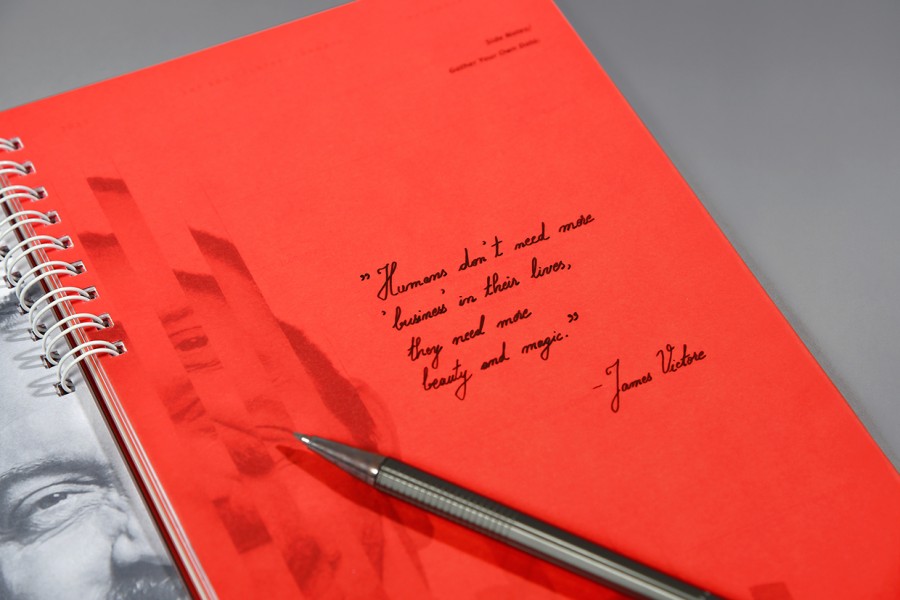 Side Notes:
Gather Your Own Data.
”Humans don't need more
'business' in their lives,
they need more
beauty and magic.”
–James Victore